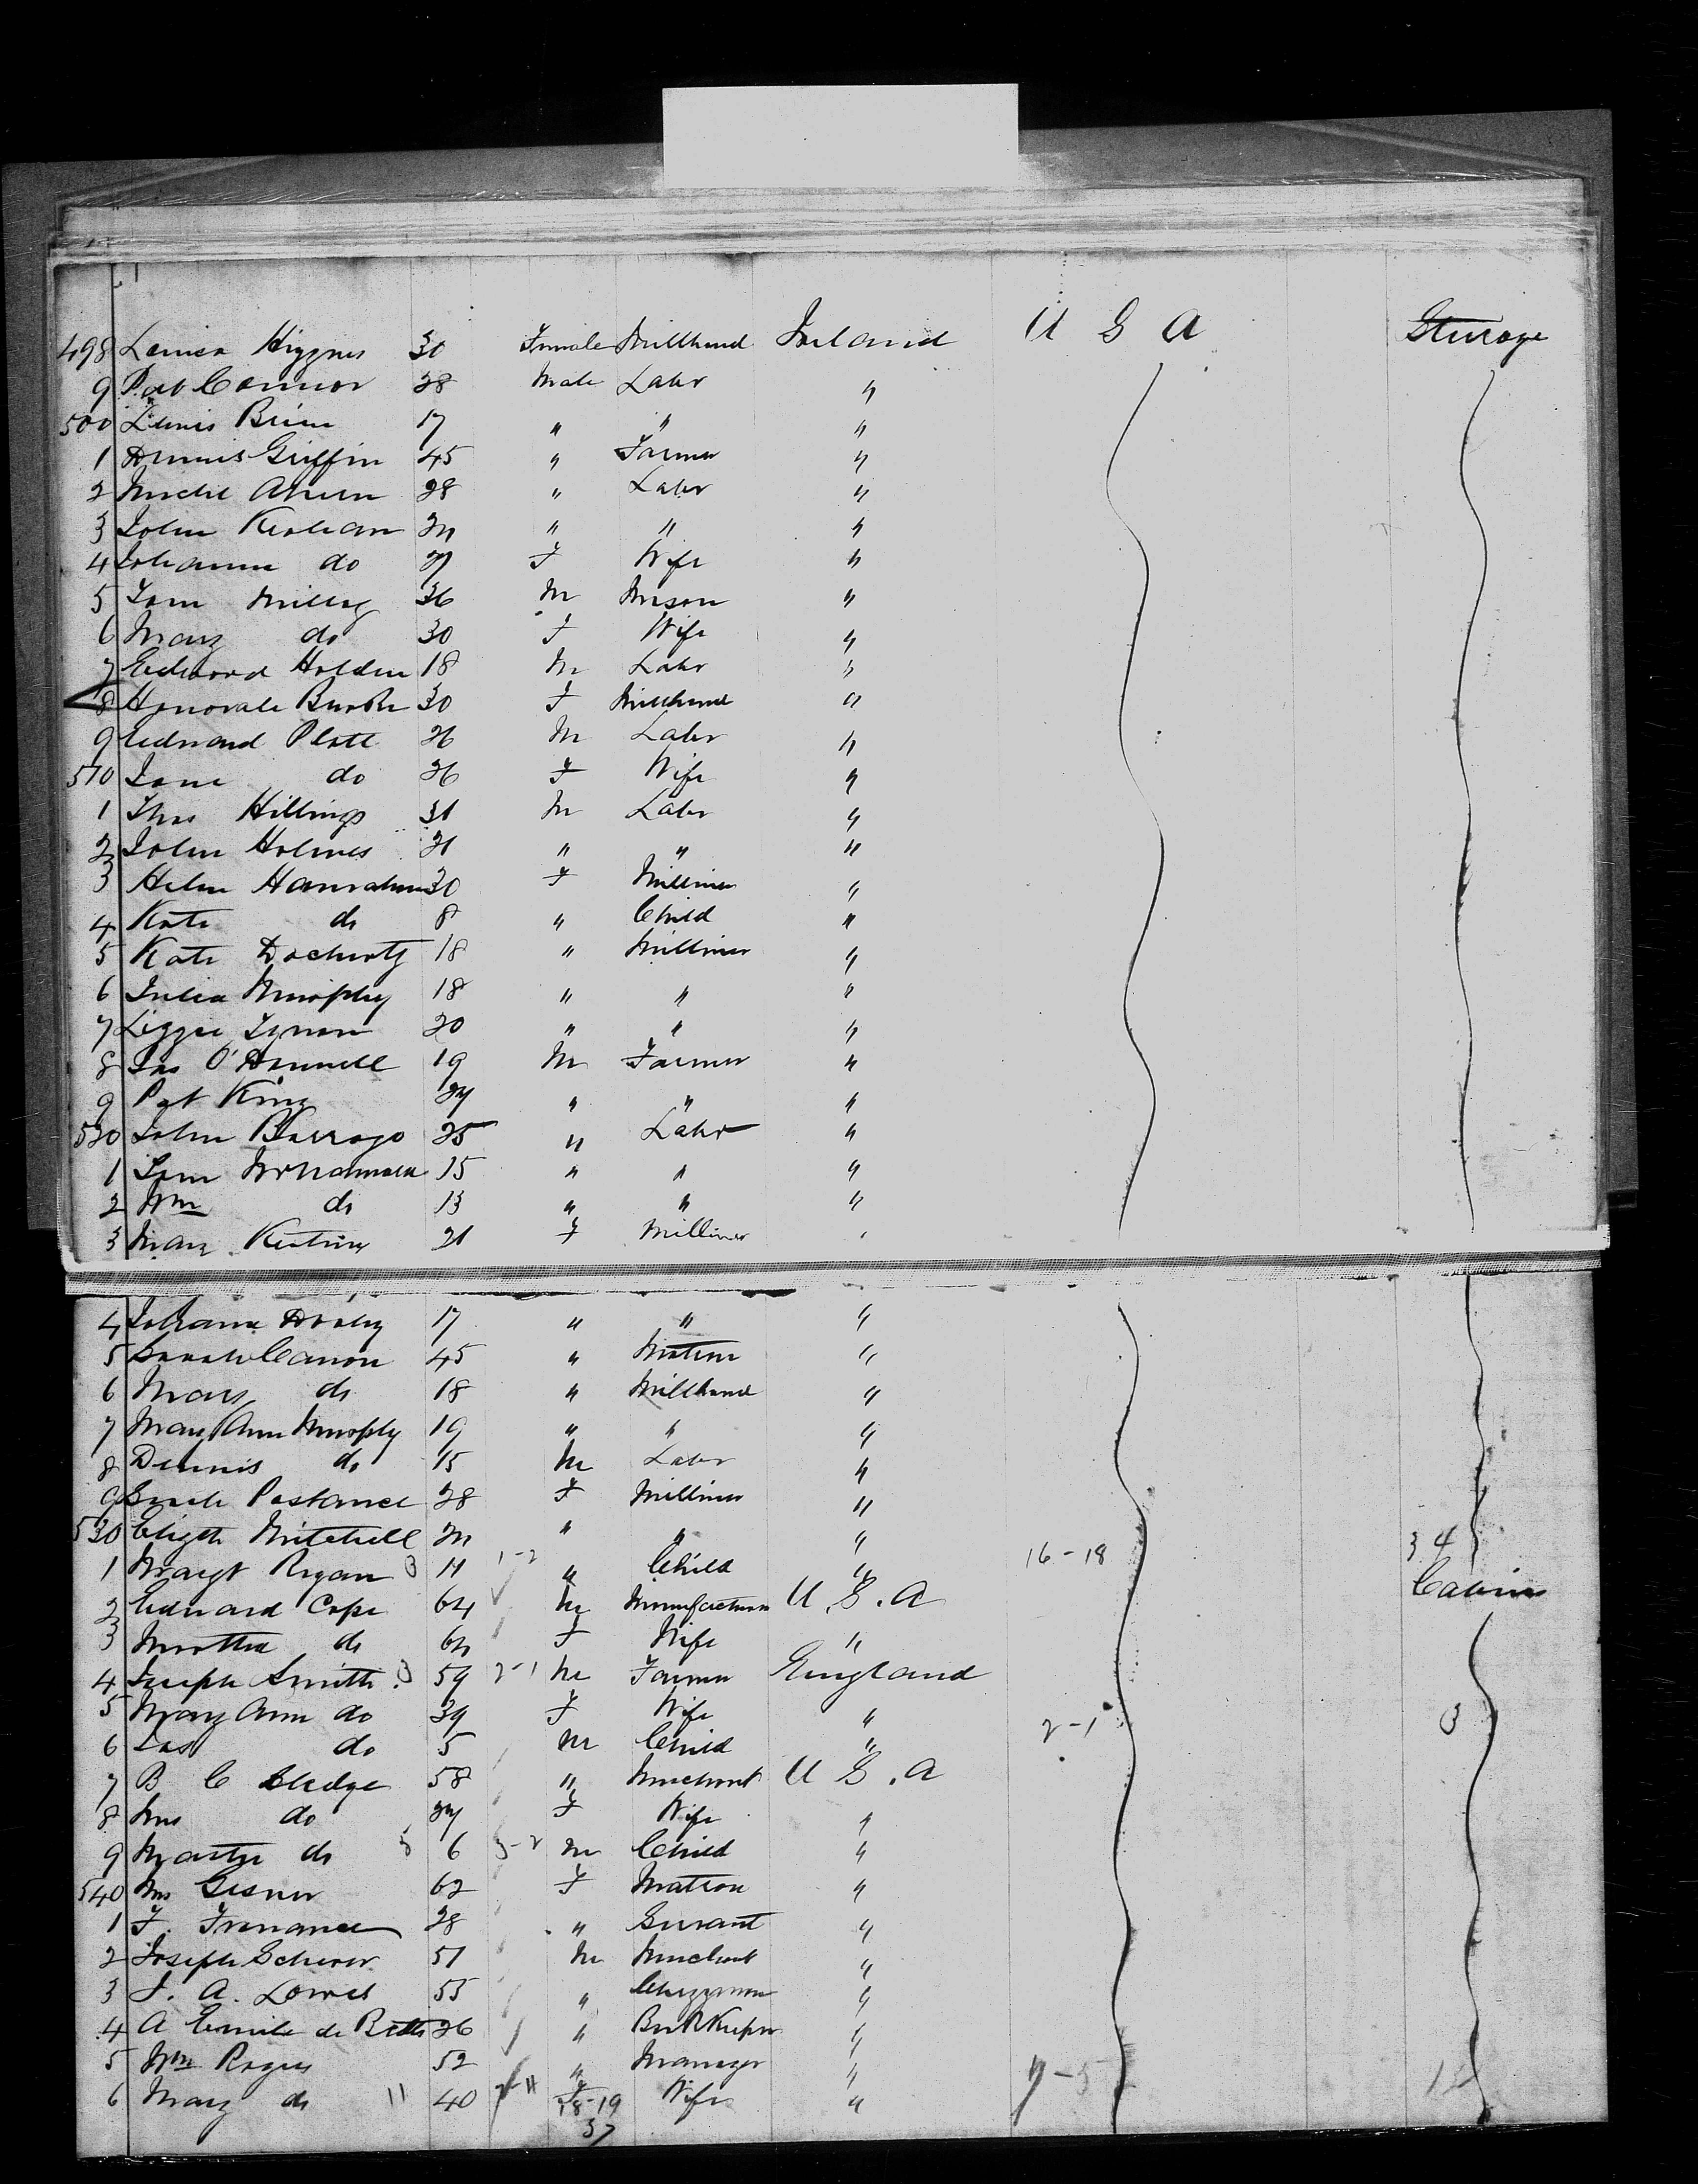 498 Louisa Higgins 30 Female Millhand Ireland U S A Steerage
9 Pat Connor 28 Male Labr "
500 17 " " "
1 Dennis Griffin 45 " Farmer "
2 Michl Ahern 28 " Labr "
3 John " " "
4 Johanna do F Wife "
5 Tom 36 M Mason "
6 Mary do 30 F Wife "
7 Edward Holden 18 M Labr "
8 Burke 30 F Millhand "
9 Edward Platt 26 M Labr "
510 Jane do 26 F Wife "
1 Thos Hillings 31 M Labr "
2 John Holmes 21 " " "
3 Helen Hanrahan 30 F Milliner "
4 Kate do 8 " Child "
5 Kate Docherty 18 " Milliner "
6 Julia Murphy 18 " " "
7 Lizzie Tynan 20 " " "
8 Jas O'Donnell 19 M Farmer "
9 Pat King 24 " " "
520 John 25 " Labr "
1 Tom McNamara 15 " " "
2 Wm do 13 " " "
3 Mary Keating 21 F Milliner "
4 Johana Dooley 17 " " "
5 Sarah Canon 45 " Matron "
6 Mary do 18 " Millhand "
7 Mary Ann Murphy 19 " " "
8 Dennis do 15 M Labr "
9 Postance 28 F Milliner "
530 Elizth Mitchell " " "
1 Margt Ryan 3 11 1-2 " Child " 16-18 34
2 Edward Cope 64 M Manufacturer U.S.A Cabin
3 Martha do F Wife "
4 Joseph Smith 3 59 2-1 M Farmer England
5 Mary Ann do 39 F Wife " 2-1 3
6 Jas do 5 M Child "
7 B C 58 " Merchant U S.A
8 Mrs do F Wife "
9 Master do 5 6 3-2 M Child "
540 Mrs Gesner 62 F Matron "
1 F. 28 " Servant "
2 Joseph Scherer 51 M Merchant "
3 J. A. Lowes 55 " Clergyman "
4 A Emile de Betts 26 " BookKeeper "
5 Wm Rogers 52 " Manager " 7-5
6 Mary do 11 40 7-11 F Wife "
18-19
37